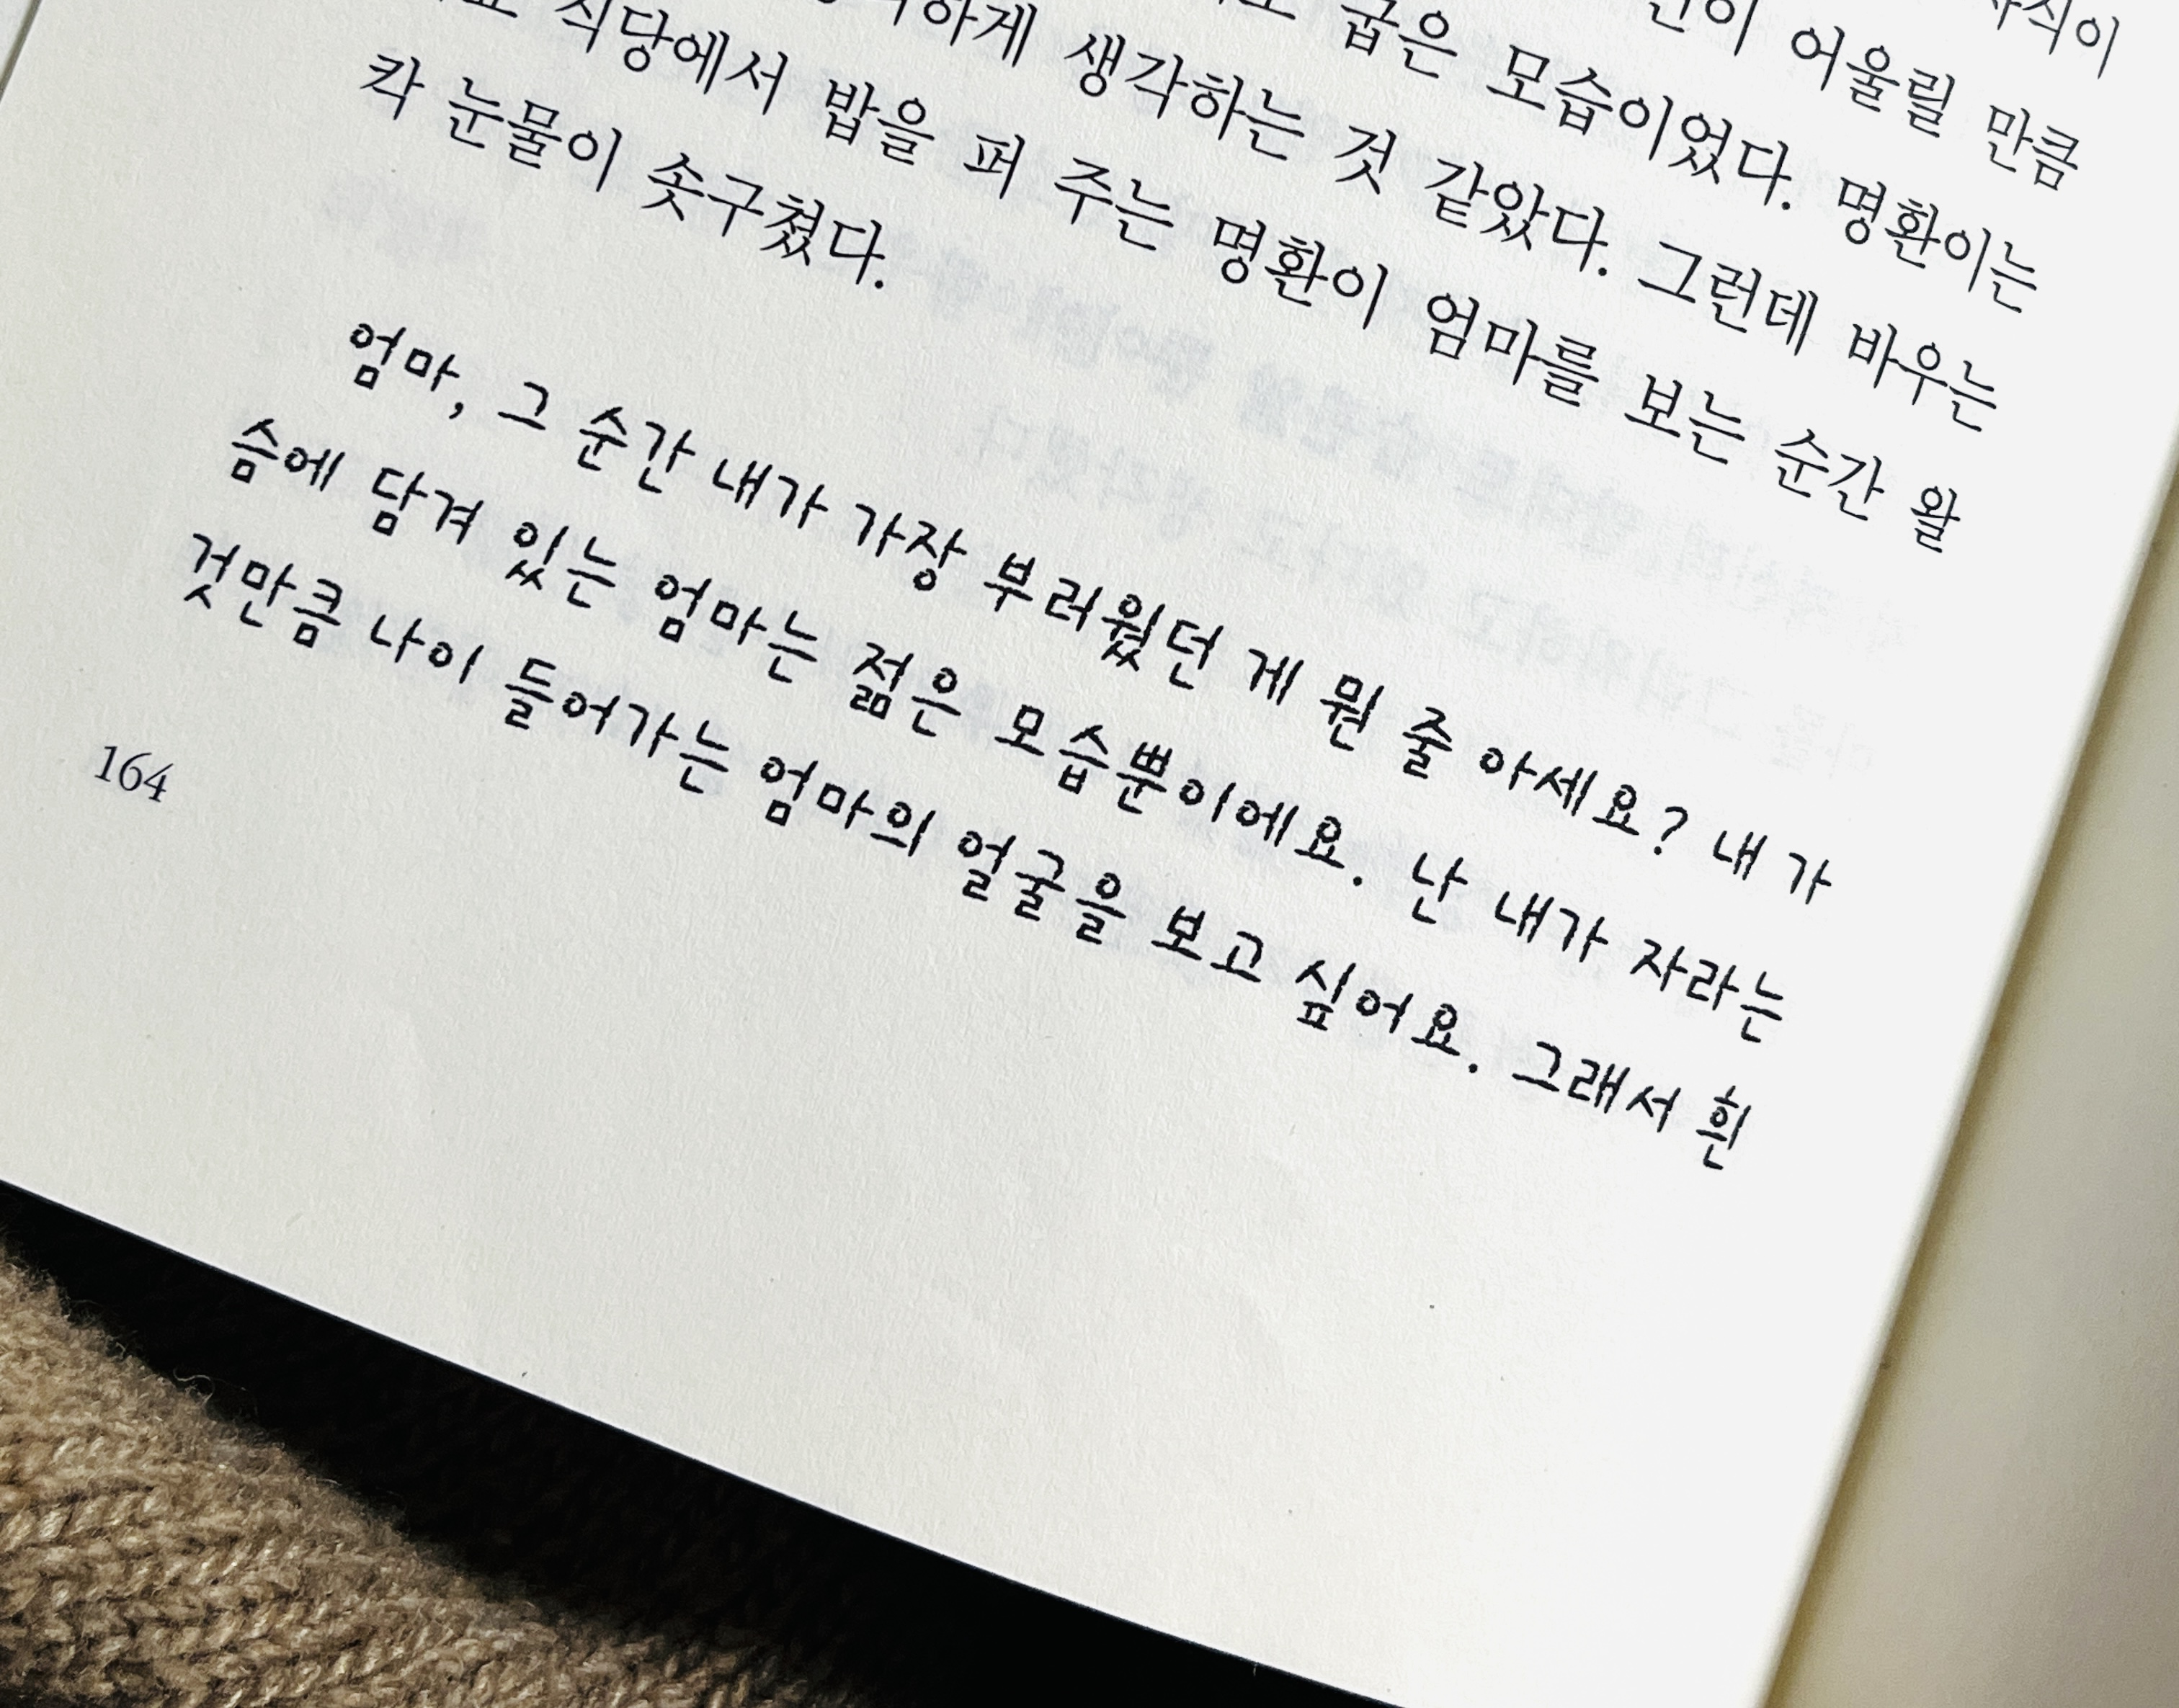 어울릴 만큼
굽은 모습이었다. 명환이는
생각하는 것 같았다. 그런데 바우는
식당에서 밥을 퍼 주는 명환이 엄마를 보는 순간 왈
칵 눈물이 솟구쳤다.
엄마, 그 순간 내가 가장 부러웠던 게 뭔 줄 아세요? 내 가
슴에 담겨 있는 엄마는 젊은 모습뿐이에요. 난 내가 자라는
것만큼 나이 들어가는 엄마의 얼굴을 보고 싶어요. 그래서 흰
164